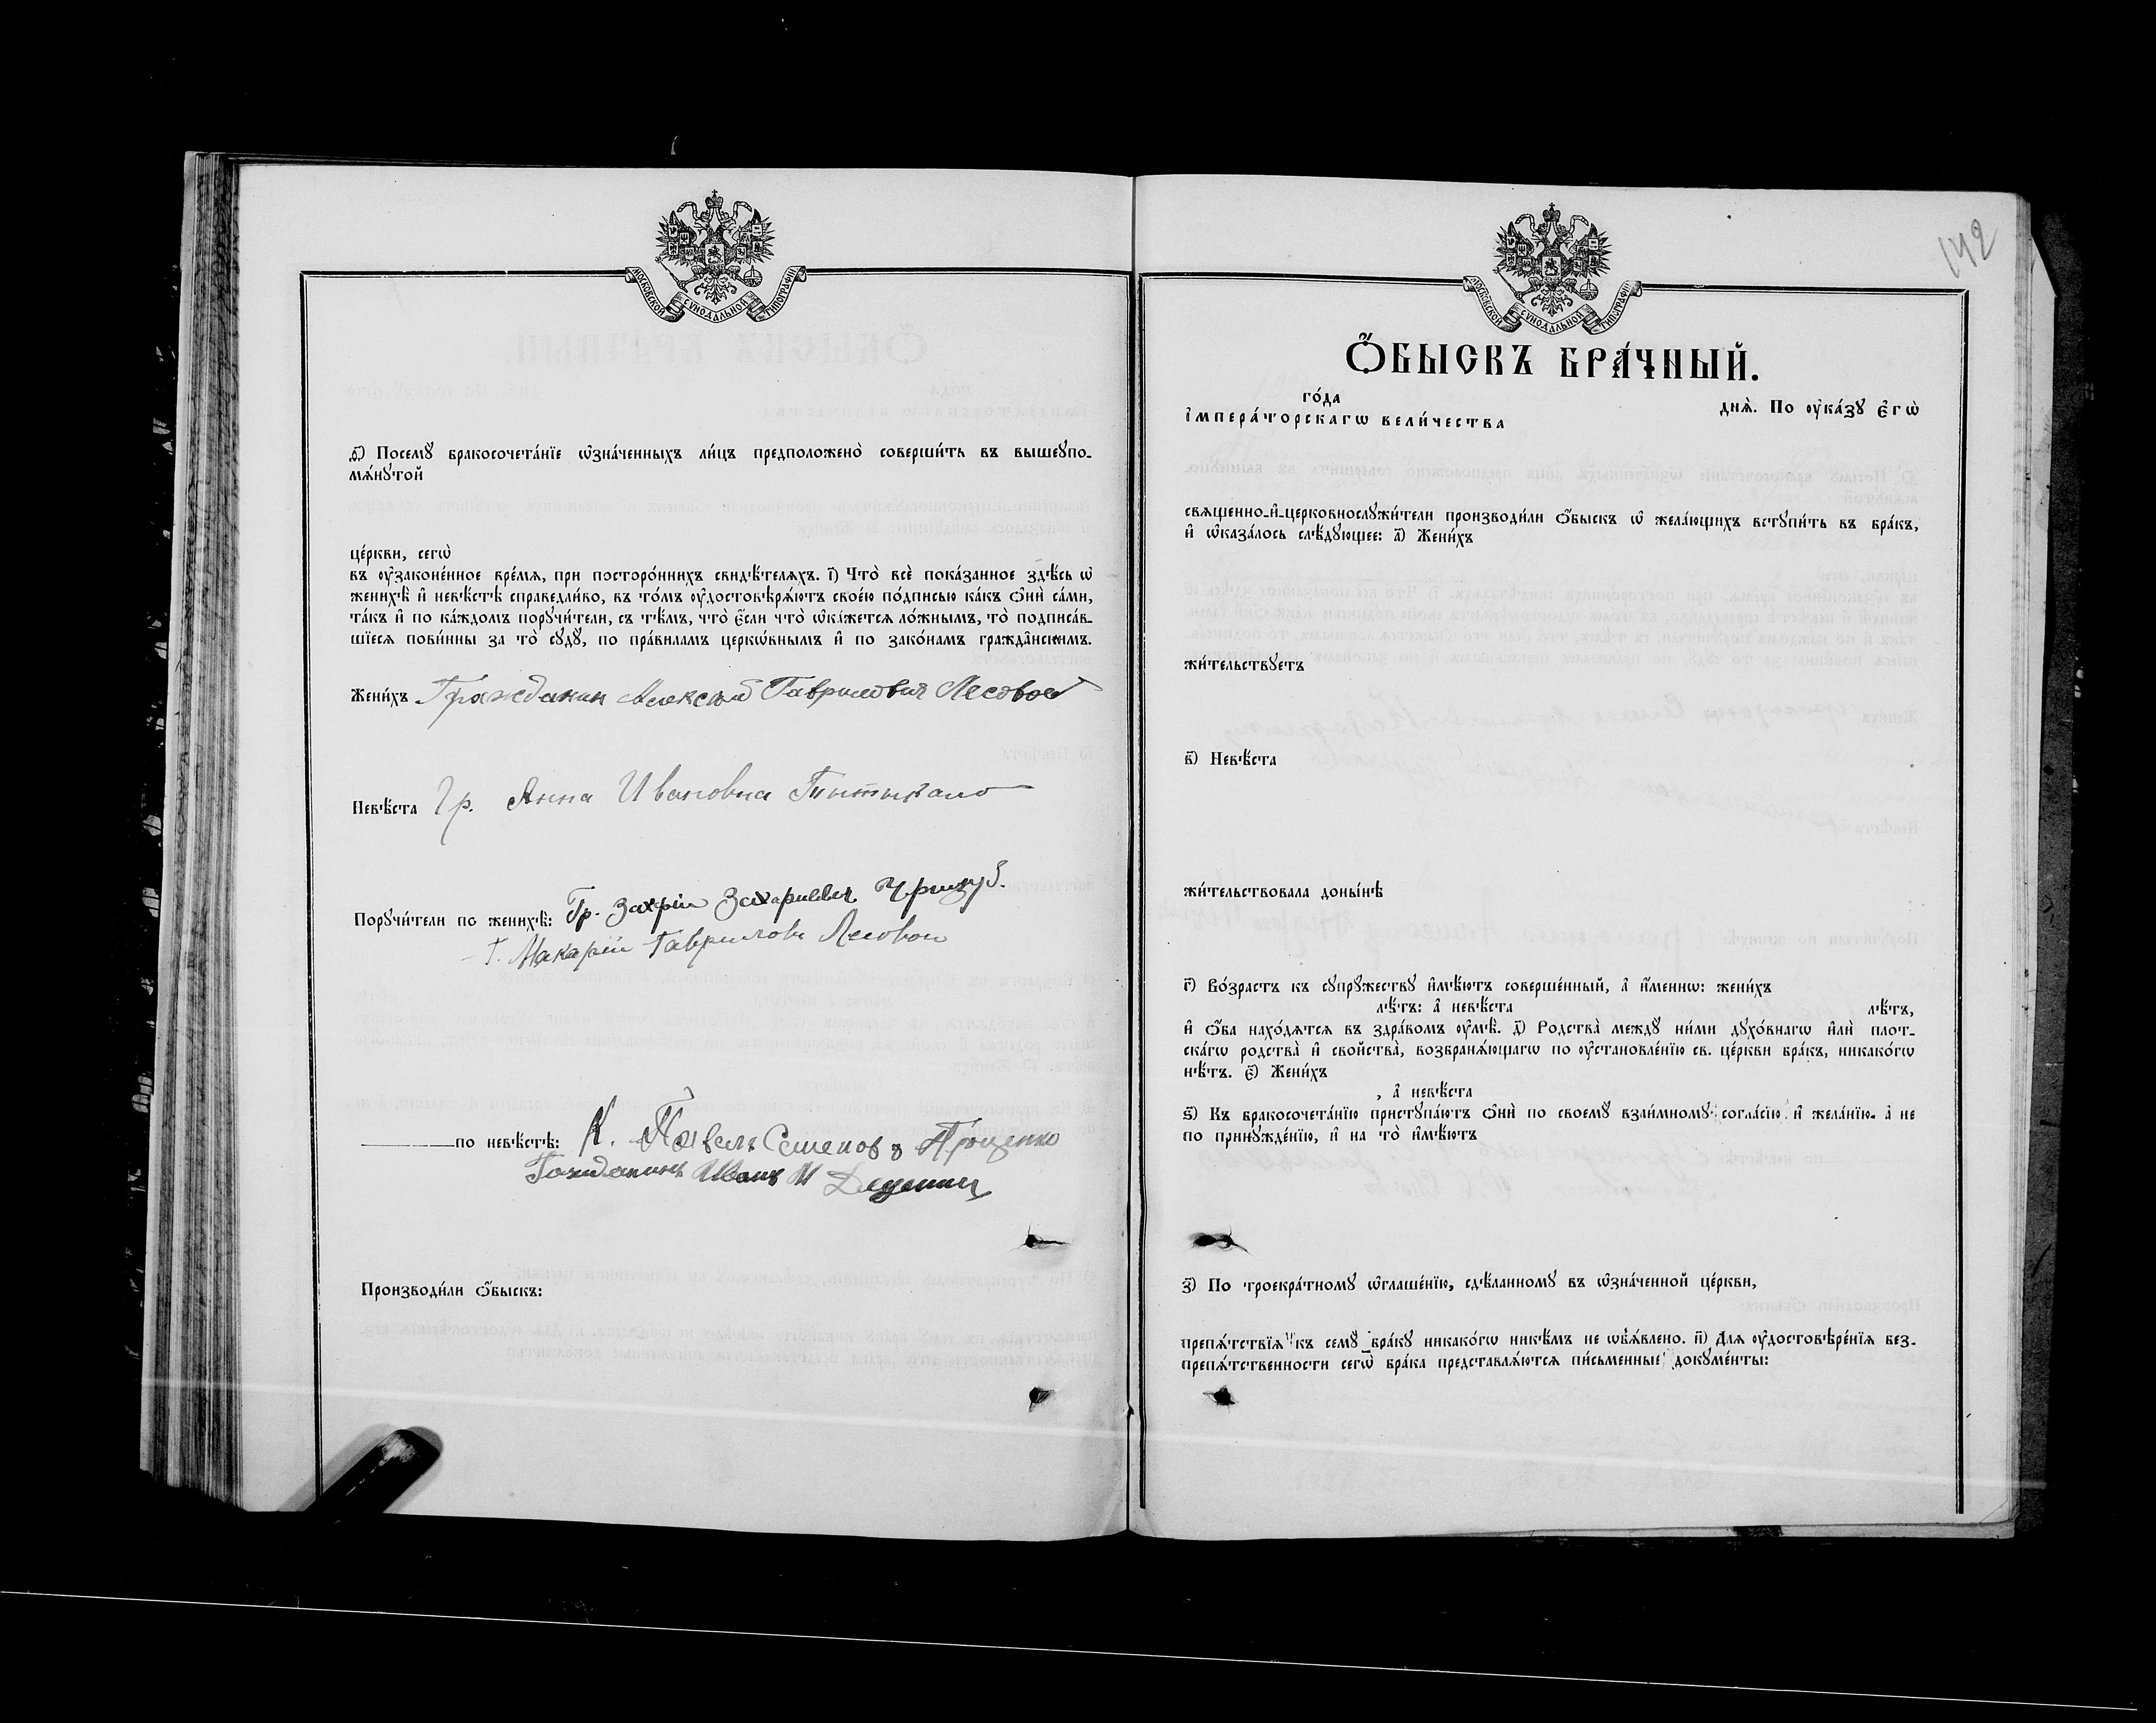 МОСКОВСКОЙ СѴНОДАЛЬНОЙ ТИПОГРАФІИ
ѳ҃) Посемꙋ̀ бракосочета́нїе ѡ҆зна́ченныхъ ли́цъ предположено̀ соверши́ть въ вышеꙋпо-
мѧ́нꙋтой
це́ркви, сегѡ̀
въ ᲂу҆законе́нное вре́мѧ, при посторо́ннихъ свидѣ́телѧхъ. і҃) Что̀ всѐ пока́занное здѣ́сь ѡ҆
женихѣ̀ и҆ невѣ́стѣ справедли́во, въ то́мъ ᲂу҆достовѣрѧ́ютъ свое́ю по́дписью ка́къ ѻ҆нѝ са́ми,
та́къ и҆ по ка́ждомъ порꙋчи́тели, съ тѣ́мъ, что̀ є҆́сли что̀ ѡ҆ка́жетсѧ ло́жнымъ, то̀ подписа́в-
шїесѧ пови́нны за то̀ сꙋдꙋ̀, по пра́виламъ церкѡ́внымъ и҆ по зако́намъ гражда́нскимъ.
Жени́хъ Гражданин Алексей Гаврилович Лесовой
Невѣ́ста Гр. Анна Ивановна
Порꙋчи́тели по женихѣ̀: Гр. Захрій Захариевич
Г. Макарій Гавриловъ Лесовой
по невѣ́стѣ: К. Павелъ Семеновъ Проценко
Иванъ И
Производи́ли ѻ҆́быскъ:
142
МОСКОВСКОЙ СѴНОДАЛЬНОЙ ТИПОГРАФІИ
Ѻ҆́БЫСКЪ БРА́ЧНЫЙ.
го́да днѧ̀. По ᲂу҆ка́зꙋ є҆гѡ̀
і҆мпера́торскагѡ вели́чества
свѧщенно-и҆-церковнослꙋжи́тели производи́ли ѻ҆́быскъ ѡ҆ жела́ющихъ встꙋпи́ть въ бра́къ,
и҆ ѡ҆каза́лось слѣ́дꙋющее: а҃) Жени́хъ
жи́тельствꙋетъ
в҃) Невѣ́ста
жи́тельствовала доны́нѣ
г҃) Во́зрастъ къ сꙋпрꙋжествꙋ и҆мѣ́ютъ соверше́нный, а҆ и҆́меннѡ: жени́хъ
лѣ́тъ: а҆ невѣ́ста лѣ́тъ,
и҆ ѻ҆́ба нахо́дѧтсѧ въ здра́вомъ ᲂу҆мѣ̀. д҃) Родства̀ междꙋ ни́ми дꙋхо́внагѡ и҆лѝ плот-
ска́гѡ родства̀ и҆ свойства̀, возбранѧ́ющагѡ по ᲂу҆становле́нїю св. це́ркви бра́къ, никако́гѡ
нѣ́тъ. є҃) Жени́хъ
, а҆ невѣ́ста
ѕ҃) Къ бракосочета́нїю пристꙋпа́ютъ ѻ҆нѝ по своемꙋ̀ взаи́мномꙋ согла́сїю и҆ жела́нїю, а҆ не
по принꙋжде́нїю, и҆ на то̀ и҆мѣ́ютъ
з҃) По троекра́тномꙋ ѡ҆глаше́нїю, сдѣ́ланномꙋ въ ѡ҆зна́ченной це́ркви,
препѧ́тствїѧ къ семꙋ̀ бра́кꙋ никако́гѡ никѣ́мъ не ѡ҆б̾ѧ́влено. и҃) Длѧ ᲂу҆достовѣре́нїѧ без-
препѧ́тственности сегѡ̀ бра́ка представлѧ́ютсѧ пи́сьменные докꙋме́нты: